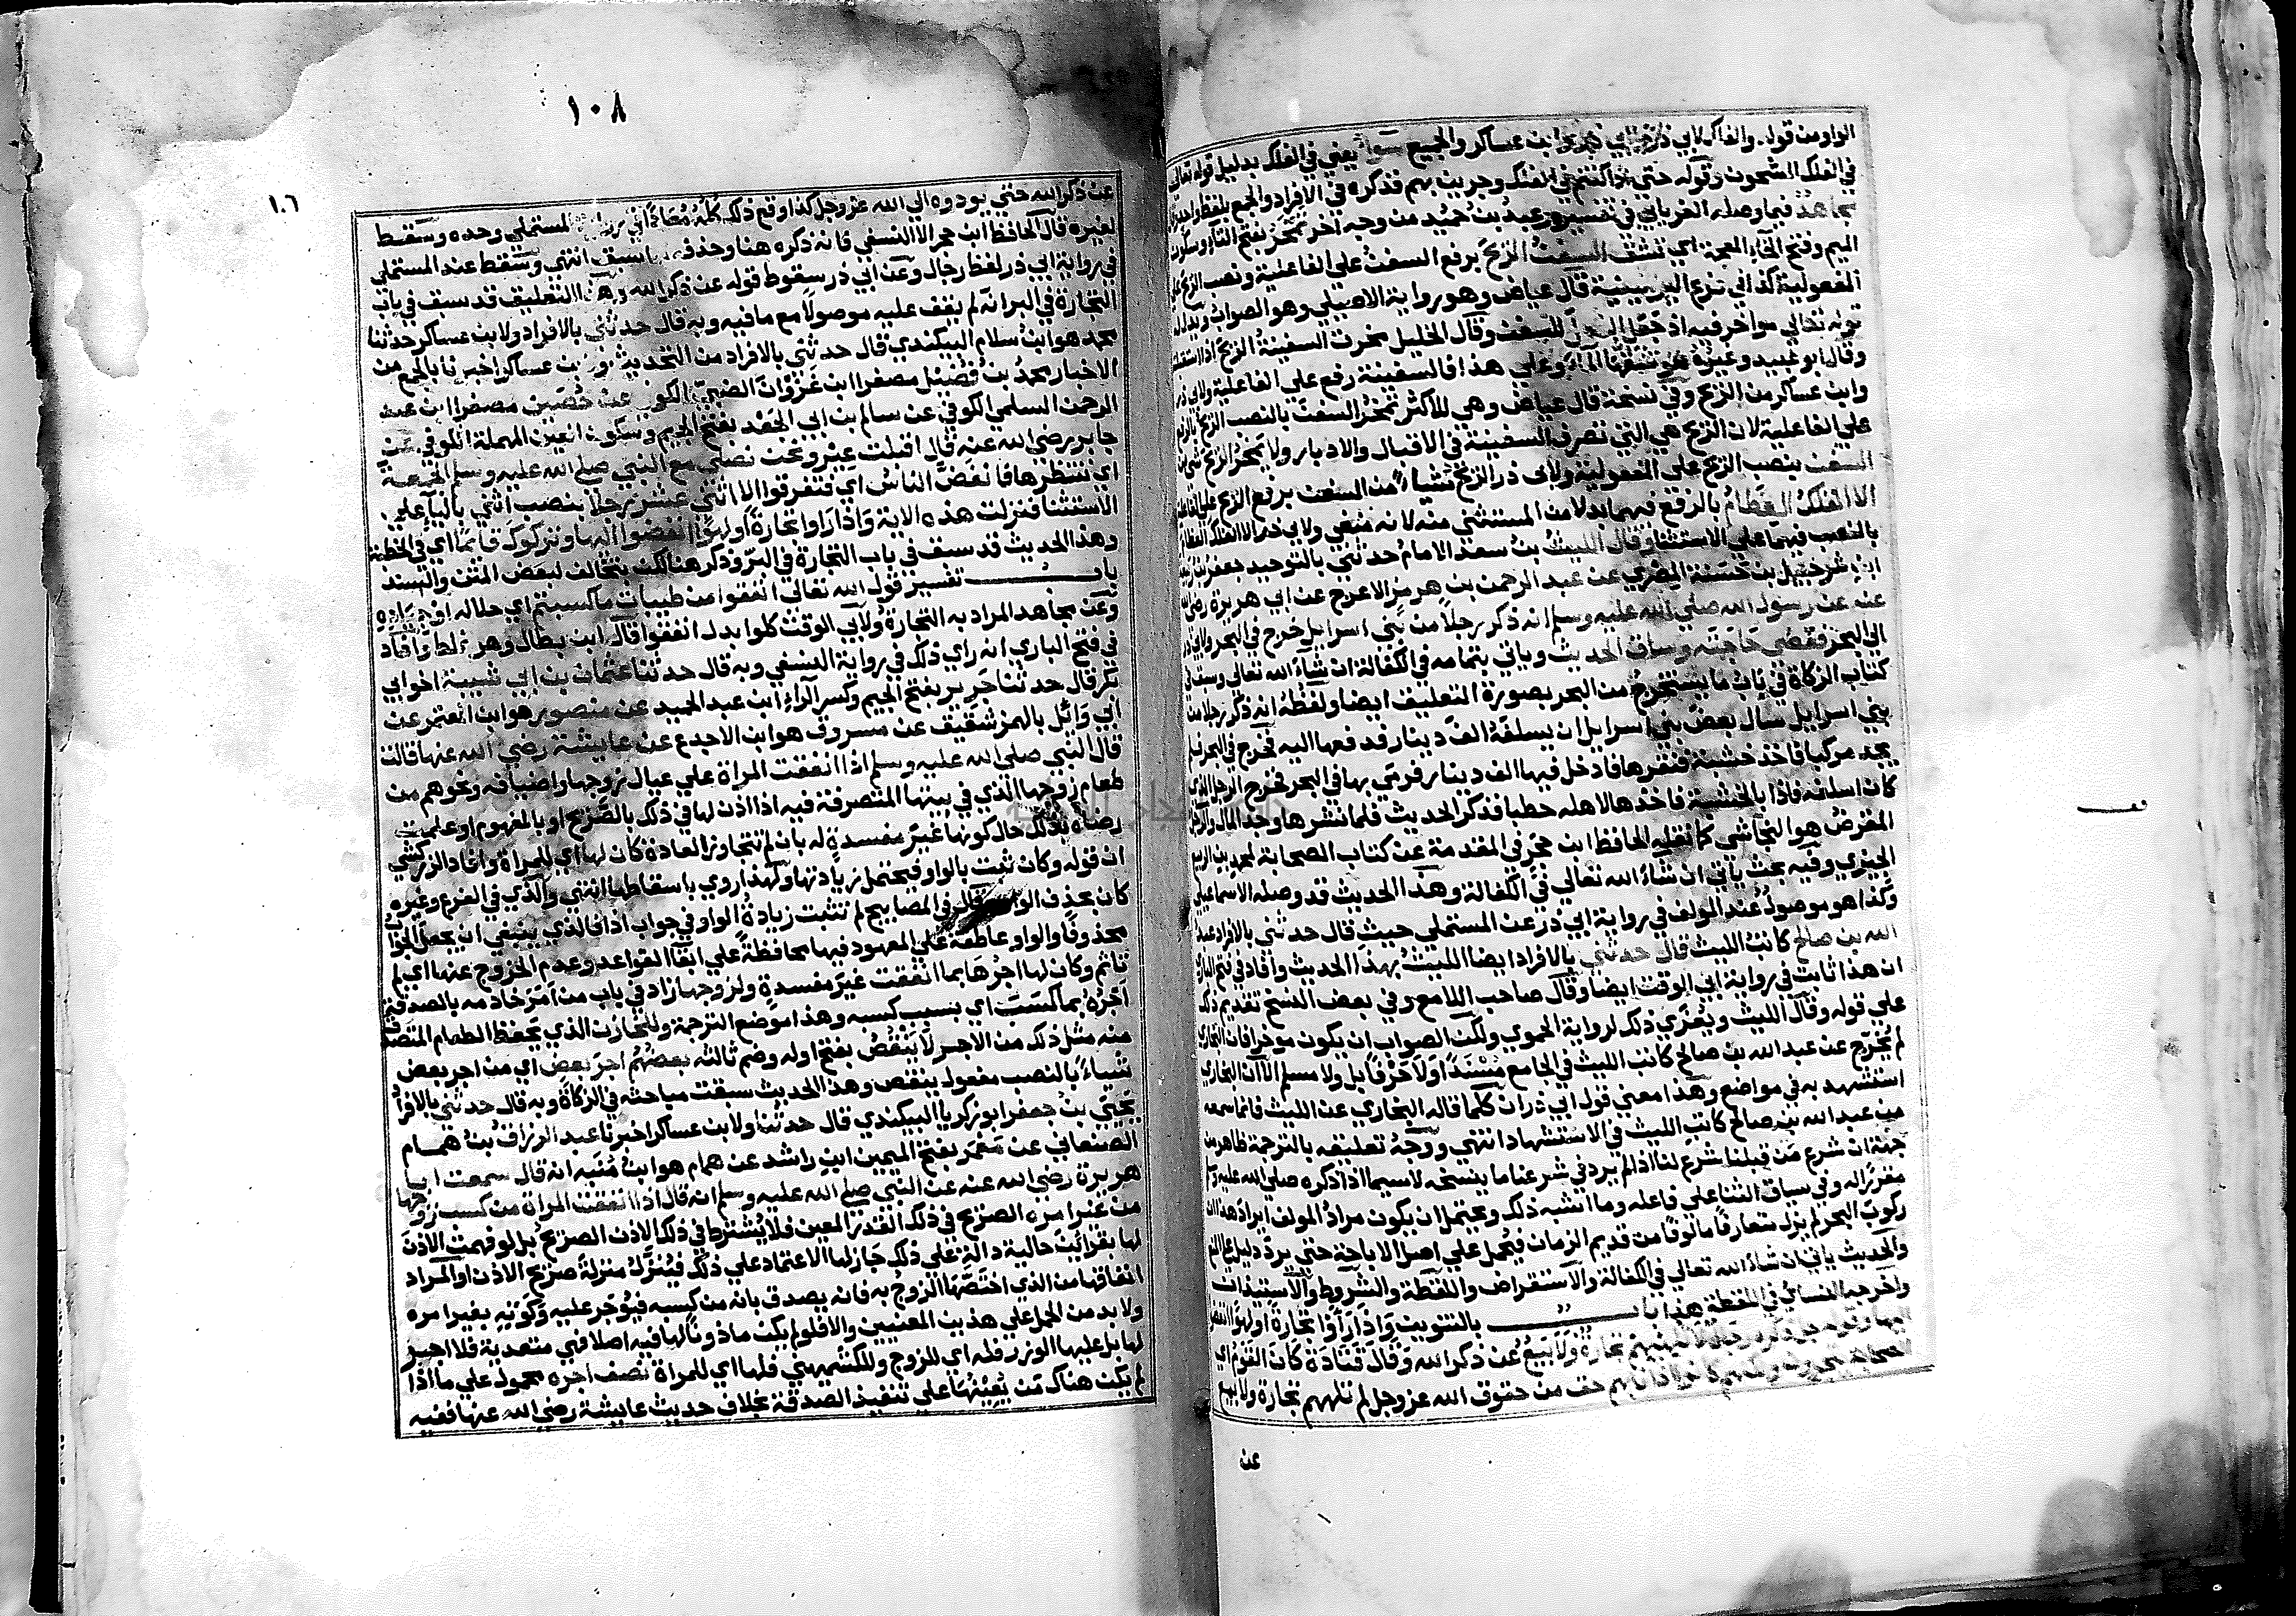 الواو من قوله والفلك ولابي ذر عن ابن عساكر والجميع سواء يعني في الفلك بدليل قوله تعالى
في الفلك المشحون وقوله حتى اذا كنتم في الفلك وجرين بهم فذكره في الافراد والجمع بلفظ واحد
مجاهد فيما وصله الفريابي في تفسيره وعبد بن حميد من وجه اخر تمخر بفتح التاء وسكون
الميم وفتح الخاء المعجمة اي تشق السفن الريح برفع السفن على الفاعلية ونصب الريح على
المفعولية كذا في فرع اليونينية قال عياض وهو رواية الاصيلي وهو الصواب ويدل له
قوله تعالى مواخر فيه اذ جعل الفعل للسفن وقال الخليل مخرت السفينة الريح اذا استقبلت
وقال ابو عبيد وغيره هو شقها الماء وعلى هذا فالسفينة رفع على الفاعلية ولابي ذر
وابن عساكر من الريح وفي نسخة قال عياض وهي للاكثر تمخر السفن بالنصب الريح بالرفع
على الفاعلية لان الريح هي التي تصرف السفينة في الاقبال والادبار ولا تمخر الريح شي من
السفن بنصب الريح على المفعولية ولابي ذر الريح شياء من السفن برفع الريح على الفاعلية
الا الفلك العظام بالرفع فيهما بدلا من المستثنى منه لانه منفي ولابي ذر الا الفلك العظام
بالنصب فيهما على الاستثنا وقال الليث بن سعد الامام حدثني بالتوحيد جعفر بن ربيعة
ابن شرحبيل بن حسنة المصري عن عبد الرحمن بن هرمز الاعرج عن ابي هريرة رضي الله
عنه عن رسول الله صلى الله عليه وسلم انه ذكر رجلا من بني اسرايل خرج في البحر ولابي ذر
الى البحر فقضى حاجته وساق الحديث وياتي بتمامه في الكفالة ان شاء الله تعالى وسبق في
كتاب الزكاة في باب ما يستخرج من البحر بصورة التعليق ايضا ولفظه انه ذكر رجلا من
بني اسرايل سال بعض بني اسرايل ان يسلفه الف دينار فدفعها اليه فخرج في البحر فلم
يجد مركبا فاخذ خشبة فنقرها فادخل فيها الف دينار فرمى بها في البحر فخرج الرجل الذي
كان اسلفه فاذا بالخشبة فاخذها لاهله حطبا فذكر الحديث فلما نشرها وجد المال والرجل
المقرض هو النجاشي كما نقله الحافظ ابن حجر في المقدمة عن كتاب الصحابة لمحمد بن الربيع
الجيزي وفيه بحث ياتي ان شاء الله تعالى في الكفالة وهذا الحديث قد وصله الاسماعيلي
وكذا هو موصول عند المولف في رواية ابي ذر عن المستملي حيث قال حدثني بالافراد عبد
الله بن صالح كاتب الليث قال حدثني بالافراد ايضا الليث بهذا الحديث وافاد في فتح الباري
ان هذا ثابت في رواية ابي الوقت ايضا وقال صاحب اللامع وفي بعض النسخ تقديم ذكر
على قوله وقال الليث ويعزى ذلك لرواية الحموي ولكن الصواب ان يكون موخرا فان البخاري
لم يخرج عن عبد الله بن صالح كاتب الليث في الجامع مسندا ولا حرفا بل ولا مسلم الا ان البخاري
استشهد به في مواضع وهذا معنى قول ابي ذر ان كلما قاله البخاري عن الليث فانما سمعه
من عبد الله بن صالح كاتب الليث في الاستشهاد انتهى ووجه تعليقه بالترجمة ظاهر من
جهة ان شرع من قبلنا شرع لنا اذا لم يرد في شرعنا ما ينسخه لا سيما اذا ذكره صلى الله عليه وسلم
مقررا له وفي سياق الثنا على فاعله وما اشبه ذلك ويحتمل ان يكون مراد المولف ايراد هذا ان
ركوب البحر لم يزل متعارفا مالوفا من قديم الزمان فيحمل على اصل الاباحة حتى يرد دليل على المنع
والحديث ياتي ان شاء الله تعالى في الكفالة والاستقراض واللقطة والشروط والاستيذان
واخرجه النسائي في اللقطة هذا باب بالتنوين واذا راوا تجارة او لهوا انفضوا
اليها وقوله جل ذكره رجال لا تلهيهم تجارة ولا بيع عن ذكر الله وقال قتادة كان القوم اي
الصحابة يتجرون ولكنهم كانوا اذا نابهم حق من حقوق الله عز وجل لم تلههم تجارة ولا بيع
عن
١٠٨
١٠٦
عن ذكر الله حتى يودوه الى الله عز وجل كذا وقع ذلك كله معادا في رواية المستملي وحده وسقط
لغيره قال الحافظ ابن حجر الا النسفي فانه ذكره هنا وحذفه مما سبق انتهى وسقط عند المستملي
في رواية ابي ذر لفظ رجال وعن ابي ذر سقوط قوله عن ذكر الله وهذا التعليق قد سبق في باب
التجارة في البر انه لم يقف عليه موصولا مع ما فيه وبه قال حدثني بالافراد ولابن عساكر حدثنا
محمد هو ابن سلام البيكندي قال حدثني بالافراد من التحديث وابن عساكر اخبرنا بالجمع من
الاخبار محمد بن فضيل مصغرا ابن غزوان الضبي الكوفي عن حصين مصغرا ابن عبد
الرحمن السلمي الكوفي عن سالم بن ابي الجعد بفتح الجيم وسكون العين المهملة الكوفي عن
جابر رضي الله عنه قال اقبلت عير ونحن نصلي مع النبي صلى الله عليه وسلم الجمعة
اي ننتظرها فانفض الناس اي فتفرقوا الا اثني عشر رجلا بنصب اثني بالياء على
الاستثنا فنزلت هذه الاية واذا راوا تجارة او لهوا انفضوا اليها وتركوك قائما اي في الخطبة
وهذا الحديث قد سبق في باب التجارة في البر وذكر هنا لكن بتخالف لبعض المتن والسند
باب تفسير قول الله تعالى انفقوا من طيبات ما كسبتم اي حلاله او جياده
وعن مجاهد المراد به التجارة ولابي الوقت كلوا بدل انفقوا قال ابن بطال وهو غلط وافاد
في فتح الباري انه راى ذلك في رواية النسفي وبه قال حدثنا عثمان بن ابي شيبة اخو ابي
بكر قال حدثنا جرير بفتح الجيم وكسر الراء ابن عبد الحميد عن منصور هو ابن المعتمر عن
ابي وائل بالهمز شقيق عن مسروق هو ابن الاجدع عن عايشة رضي الله عنها قالت
قال النبي صلى الله عليه وسلم اذا انفقت المراة على عيال زوجها واضيافه ونحوهم من
طعام زوجها الذي في بيتها المتصرفة فيه اذا اذن لها في ذلك بالصريح او بالمفهوم او علمت
رضاه بذلك حال كونها غير مفسدة له بان لم تتجاوز العادة كان لها اي للمراة وافاد الزركشي
ان قوله وكان ثبت بالواو فيحتمل زيادتها ولهذا روي باسقاطها انتهى والذي في الفرع وغيره
كان بحذف الواو قال في المصابيح لم تثبت زيادة الواو في جواب اذا فالذي ينبغي ان يجعل الجواب
محذوفا والواو عاطفة على المعهود فيها محافظة على ابقا القواعد وعدم الخروج عنها اي لم
تاثم وكان لها اجرها بما انفقت غير مفسدة ولزوجها زاد في باب من امر خادمه بالصدقة
اجره بما كسب اي بسبب كسبه وهذا موضع الترجمة وللخازن الذي يحفظ الطعام المتصدق
منه مثل ذلك من الاجر لا ينقص بفتح اوله وضم ثالثه بعضهم اجر بعض اي من اجر بعض
شياء بالنصب مفعول ينقص وهذا الحديث سبقت مباحثه في الزكاة وبه قال حدثني بالافراد
يحيى بن جعفر ابو زكريا البيكندي قال حدثنا ولابن عساكر اخبرنا عبد الرزاق بن همام
الصنعاني عن معمر بفتح الميمين ابن راشد عن همام هو ابن منبه انه قال سمعت ابا
هريرة رضي الله عنه عن النبي صلى الله عليه وسلم انه قال اذا انفقت المراة من كسب زوجها
من غير امره الصريح في ذلك القدر المعين فلا يشترط في ذلك الاذن الصريح بل لو فهمت الاذن
لها بقرائن حالية دالة على ذلك جاز لها الاعتماد على ذلك فينزل منزلة صريح الاذن او المراد
انفاقها من الذي اختصها الزوج به فانه يصدق بانه من كسبه فيوجر عليه وكونه بغير امره
ولا بد من الحمل على هذين المعنيين والا فلو لم يكن ماذونا لها فيه اصلا فهي متعدية فلا اجر
لها بل عليها الوزر فله اي للزوج وللكشميهني فلها اي للمراة نصف اجره محمول على ما اذا
لم يكن هناك من يعينها على تنفيذ الصدقة بخلاف حديث عايشة رضي الله عنها ففيه